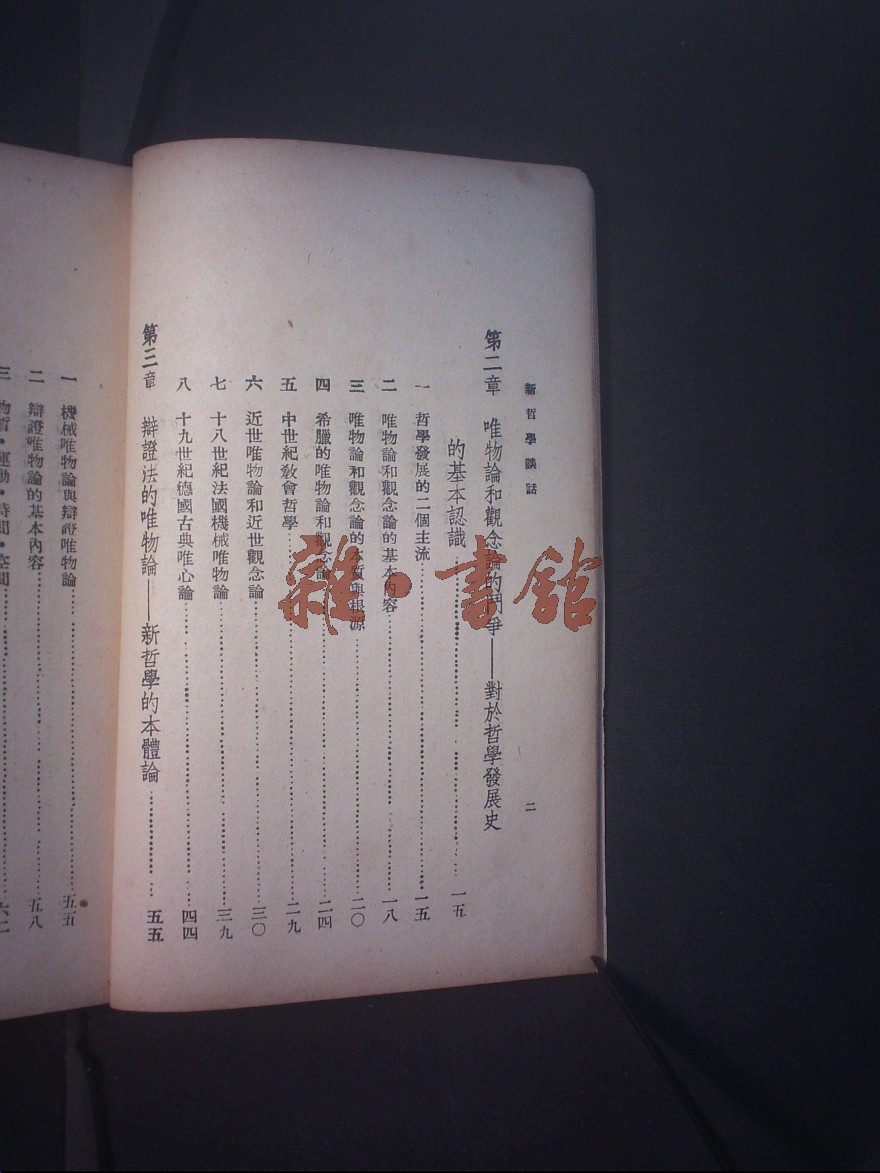 新哲學談話 二
第二章 唯物論和觀念論的鬥爭——對於哲學發展史
的基本認識………………一五
一 哲學發展的二個主流………………一五
二 唯物論和觀念論的基本內容………………一八
三 唯物論和觀念論的本質與根源………………二〇
四 希臘的唯物論和觀念論………………二四
五 中世紀教會哲學………………二九
六 近世唯物論和近世觀念論………………三〇
七 十八世紀法國機械唯物論………………三九
八 十九世紀德國古典唯心論………………四四
第三章 辯證法的唯物論——新哲學的本體論………………五五
一 機械唯物論與辯證唯物論………………五五
二 辯證唯物論的基本內容………………五八
三 物質·運動·時間·空間………………六二
雜·書館